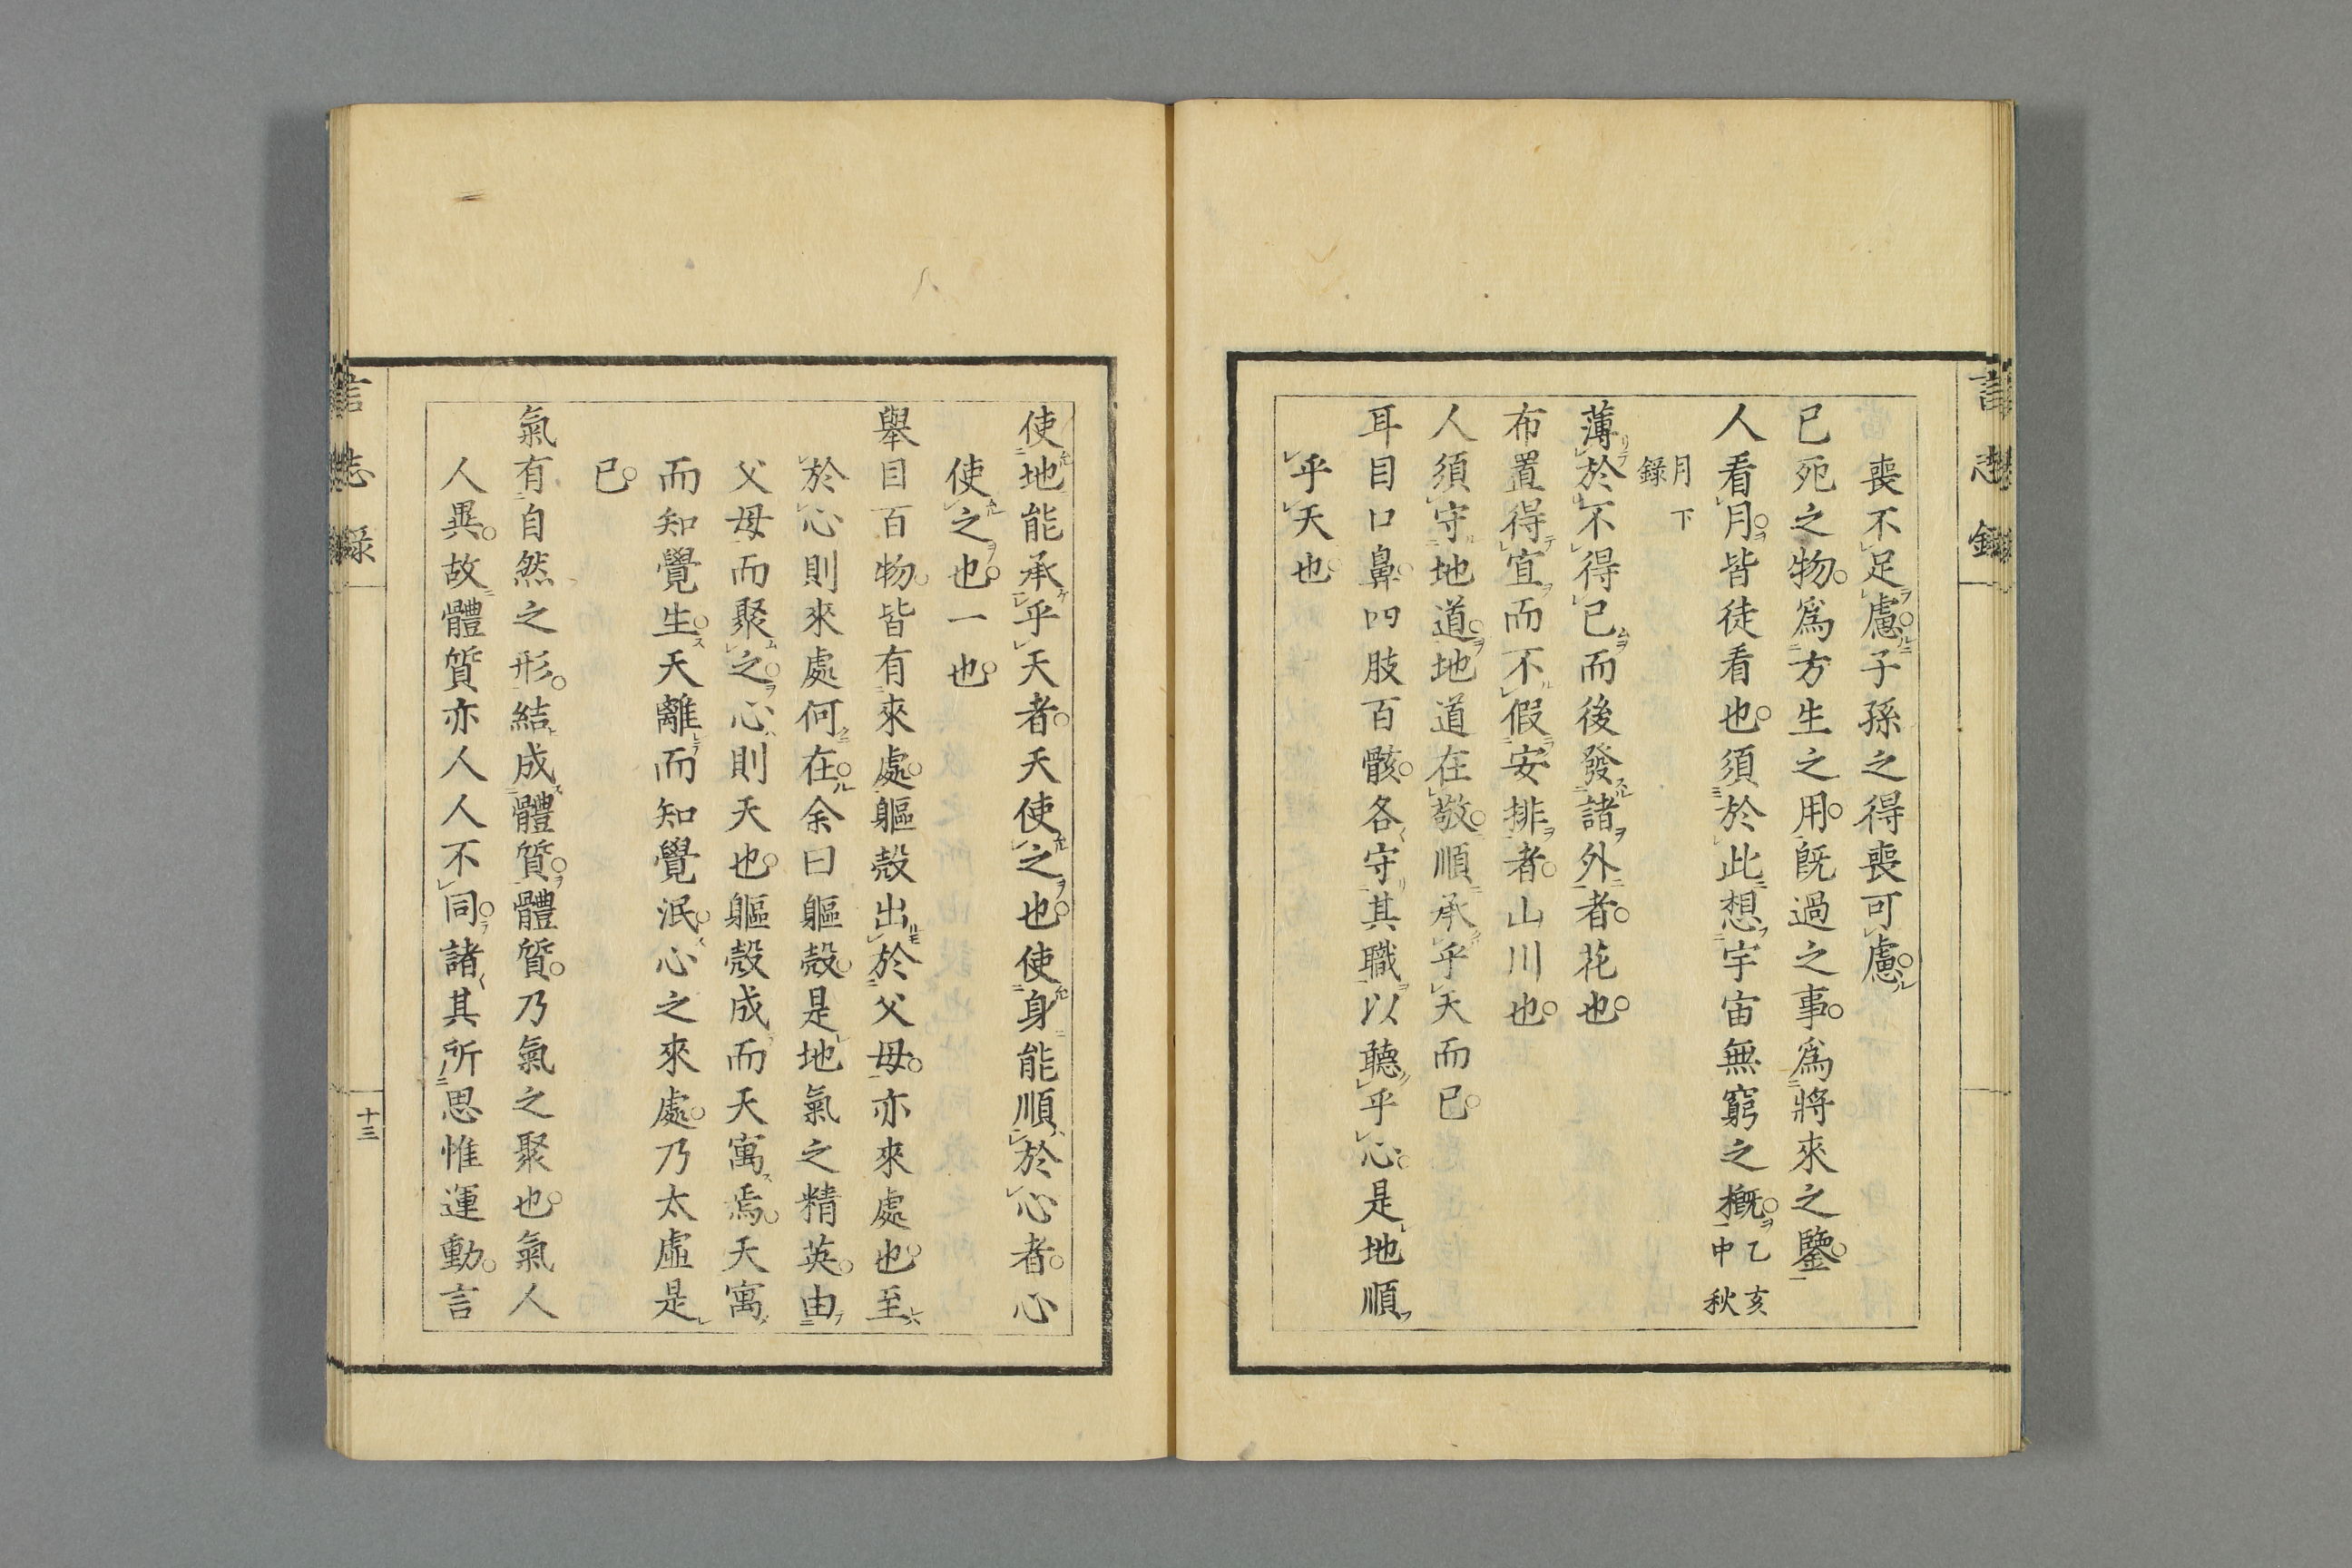 言志録
喪不足慮子孫之得喪可慮
已死之物爲方生之用既過之事爲將來之鑒
人看月皆徒看也須於此想宇宙無窮之概乙亥中秋
月下録
薄於不得已而後發諸外者花也
布置得宜而不假安排者山川也
人須守地道地道在敬順承乎天而已
耳目口鼻四肢百骸各守其職以聽乎心是地順
乎天也
使地能承乎天者天使之也使身能順於心者心
使之也一也
舉目百物皆有來處軀殼出於父母亦來處也至
於心則來處何在余曰軀殼是地氣之精英由
父母而聚之心則天也軀殼成而天寓焉天寓
而知覺生天離而知覺泯心之來處乃太虛是
已
氣有自然之形結成體質體質乃氣之聚也氣人
人異故體質亦人人不同諸其所思惟運動言
言志録
十三